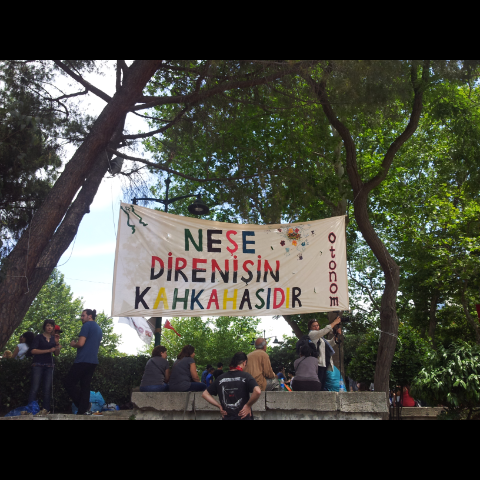 NEŞE
DİRENİŞİN
KAHKAHASIDIR
otonom